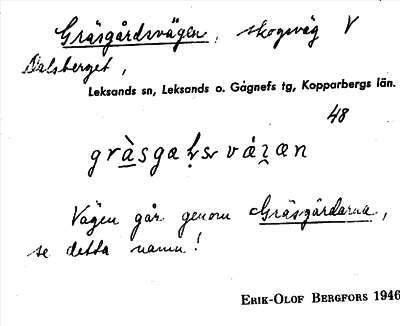 Gräsgårdsvägen, skogsväg V
Dalsberget,
Leksands sn, Leksands o. Gagnefs tg, Kopparbergs län.
48
Vägen går genom Gräsgårdarna,
se detta namn!
ERIK-OLOF BERGFORS 1946